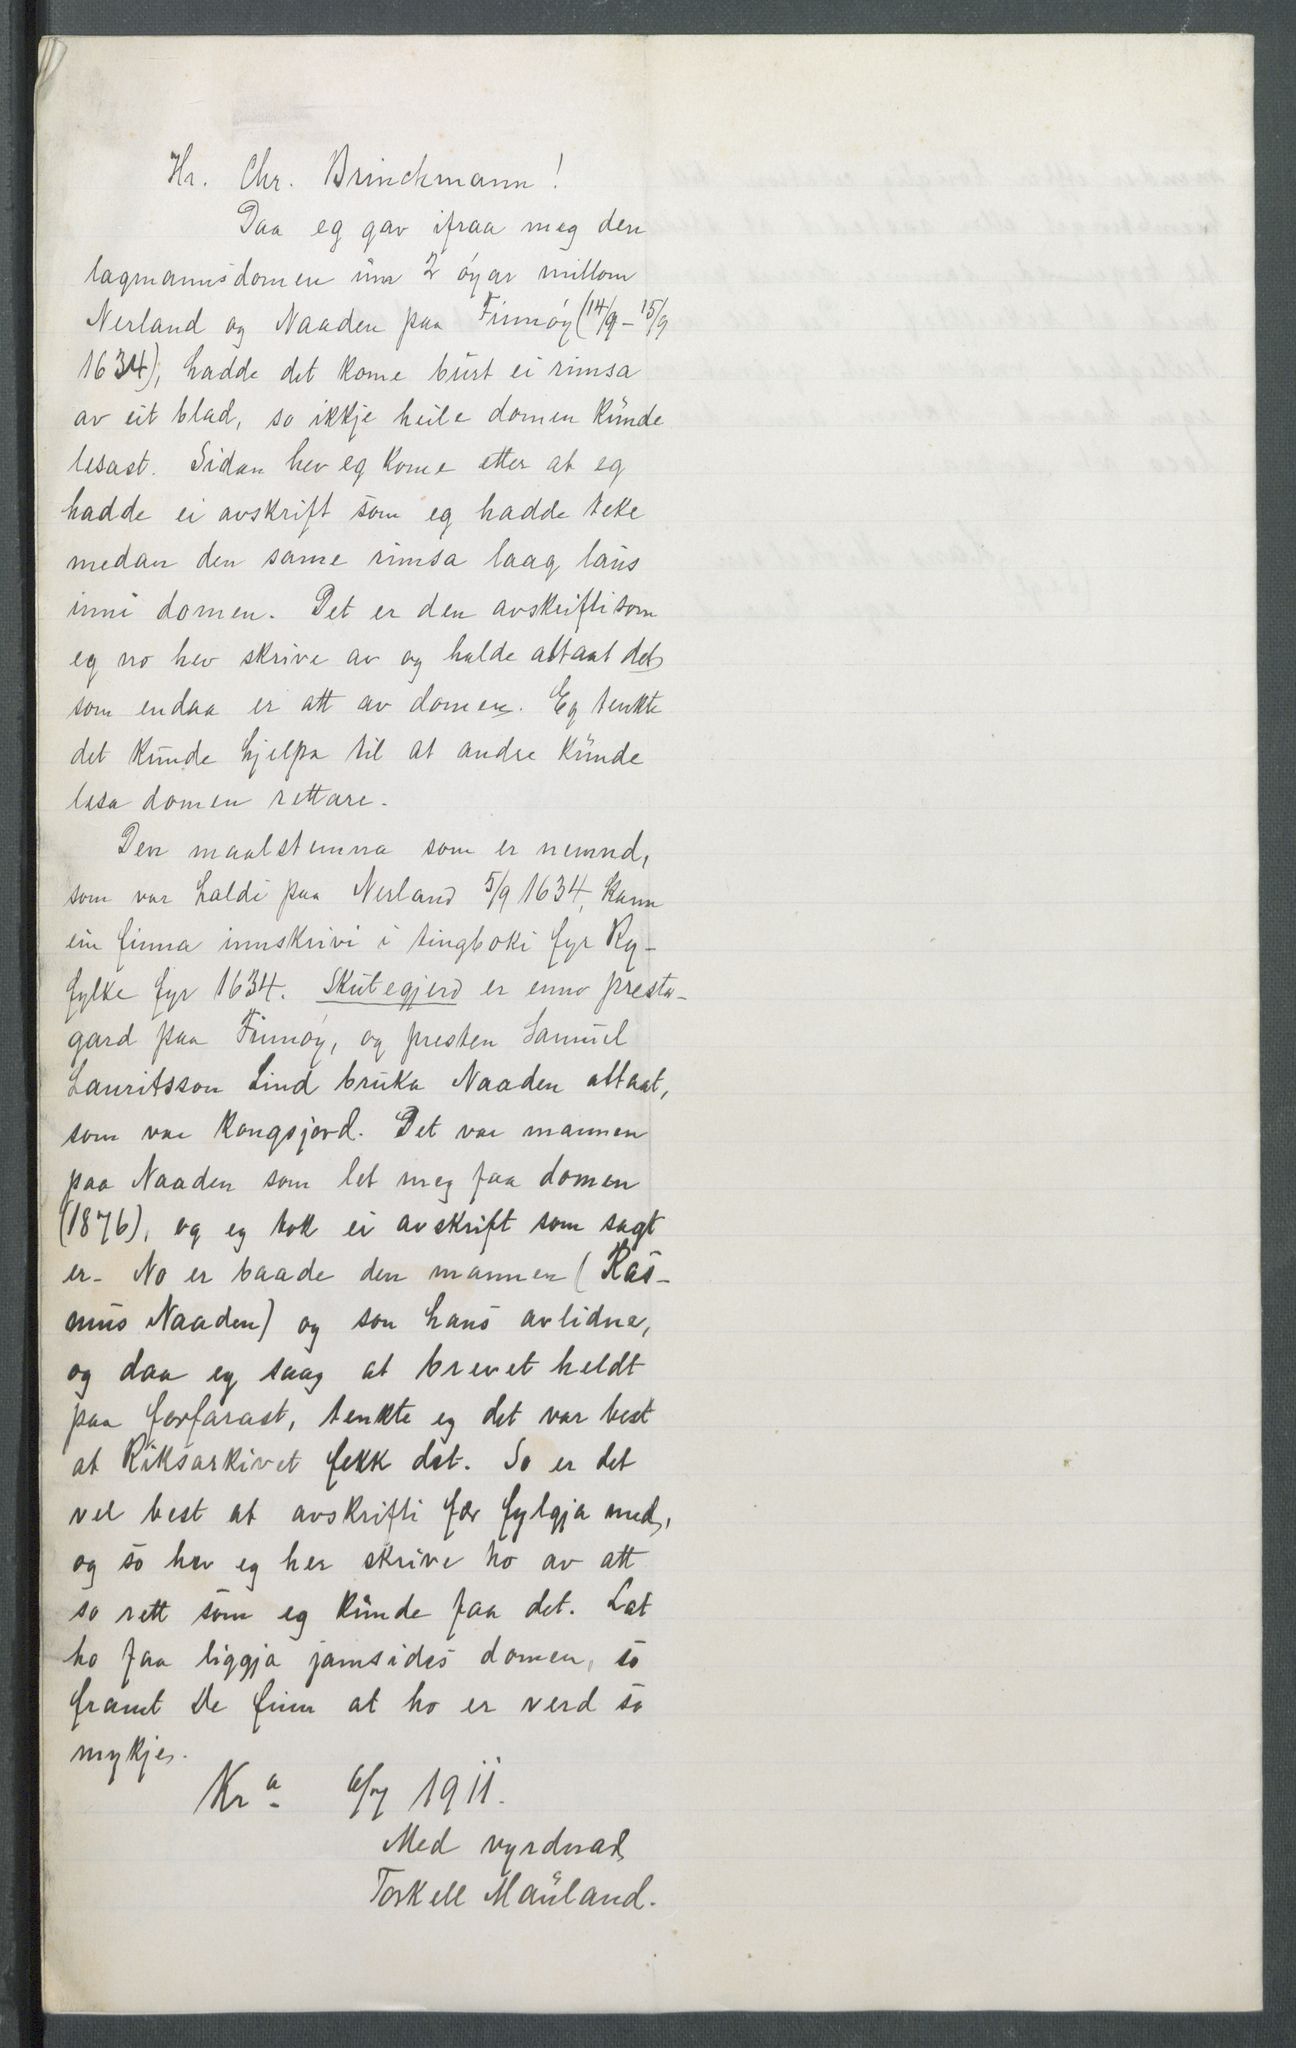 Hr. Chr. Brinchmann!
Daa eg gav ifraa meg den
lagmannsdomen um 2 øyar millom
Nerland og Naaden paa Finnøy (14/9 – 15/9
1634), hadde det kome burt ei rimsa
av eit blad, so ikkje heile domen kunde
lesast. Sidan hev eg kome etter at eg
hadde ei avskrift som eg hadde teke
medan den same rimsa laag laus
inni domen. Det er den avskrifti som
eg no hev skrive av og halde attaat det
som endaa er att av domen. Eg tenkte
det kunde hjelpa til at andre kunde
lesa domen rettare.
Den maalstemna som er nemnd,
som var haldi paa Nerland 5/9 1634, kann
ein finna innskrivi i tingboki fyr Ry-
fylke fyr 1634. Skutegjerd er enno presta-
gard paa Finnøy, og presten Samuel
Lauritsson Lind bruka Naaden attaat,
som var kongsjord. Det var mannen
paa Naaden som let meg faa domen
(1876), og eg tok ei avskrift som sagt
er. No er baade den mannen (Ras-
mus Naaden) og son hans avlidne,
og daa eg saag at brevet heldt
paa forfarast, tenkte eg det var best
at Riksarkivet fekk det. So er det
vel best at avskrifti fær fylgja med,
og so hev eg her skrive ho av att
so rett som eg kunde faa det. Lat
ho faa liggja jamsides domen, so
framt De finn at ho er verd so
mykje.
Kra. 6/7 1911.
Med vyrdnad
Torkell Mauland.